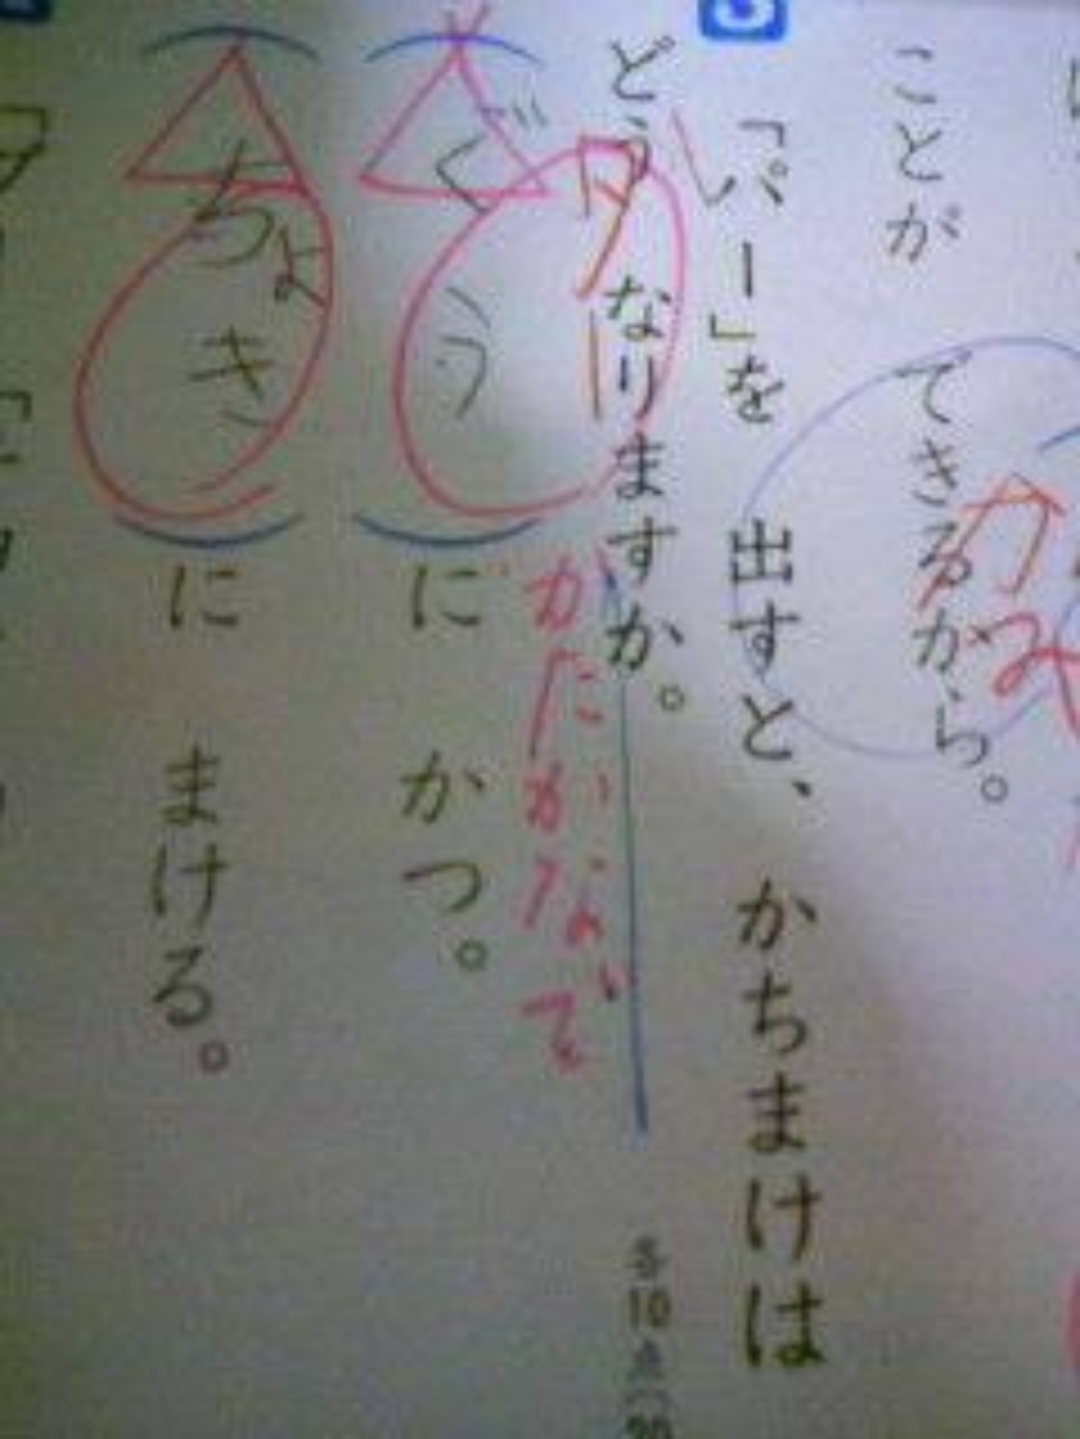 ことが できるから。
「パー」を 出すと、かちまけは
どう なりますか。
各10点
グー
かたかなで
(ぐう)に かつ。
(ちょき)に まける。